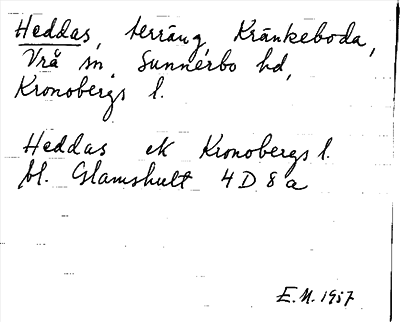 Heddas, terräng, Kränkeboda,
Vrå sn, Sunnerbo hd,
Kronobergs l.
Heddas ek Kronobergs l.
bl. Glamshult 4 D 8 a
E.M. 1957